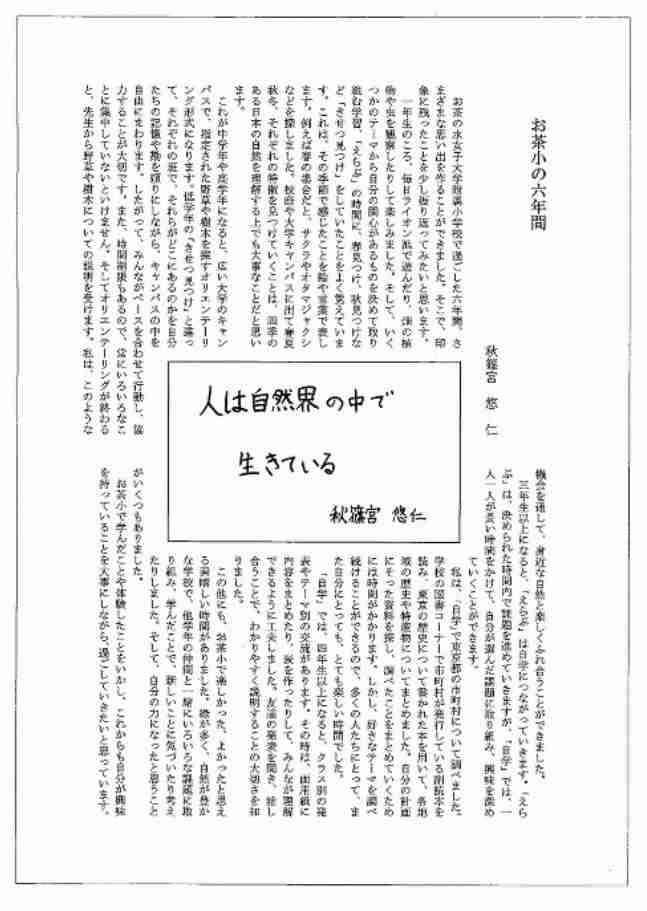 お茶小の六年間
秋篠宮 悠 仁
お茶の水女子大学附属小学校で過ごした六年間、さ
まざまな思い出を作ることができました。そこで、印
象に残ったことを少し振り返ってみたいと思います。
一年生のころ、毎日ライオン池で遊んだり、畑の植
物や虫を観察したりして楽しみました。そして、いく
つかのテーマから自分の関心があるものを決めて取り
組む学習、「えらぶ」の時間に、春見つけ、秋見つけな
ど「きせつ見つけ」をしていたことをよく覚えていま
す。これは、その季節で感じたことを絵や言葉で表し
ます。例えば春の場合だと、サクラやオタマジャクシ
などを探しました。校庭や大学キャンパスに出て春夏
秋冬、それぞれの特徴を見つけていくことは、四季の
ある日本の自然を理解する上でも大事なことだと思い
ます。
これが中学年や高学年になると、広い大学のキャン
パスで、指定された野草や樹木を探すオリエンテーリ
ング形式になります。低学年の「きせつ見つけ」と違っ
て、それぞれの班で、それらがどこにあるのかを自分
たちの記憶や勘を頼りにしながら、キャンパスの中を
自由にまわります。したがって、みんながペースを合わせて行動し、協
力することが大切です。また、時間制限もあるので、常にいろいろなこ
とに集中していないといけません。そしてオリエンテーリングが終わる
と、先生から野草や樹木についての説明を受けます。私は、このような
機会を通して、身近な自然と楽しくふれ合うことができました。
三年生以上になると、「えらぶ」は自学につながっていきます。「えら
ぶ」は、決められた時間内で課題を進めていきますが、「自学」では、一
人一人が長い時間をかけて、自分が選んだ課題に取り組み、興味を深め
ていくことができます。
私は、「自学」で東京都の市町村について調べました。
学校の図書コーナーで市町村が発行している副読本を
読み、東京の歴史について書かれた本を用いて、各地
域の歴史や特産物についてまとめました。自分の計画
にそった資料を探し、調べたことをまとめていくため
には時間がかかります。しかし、好きなテーマを調べ
続けることができるので、多くの人たちにとって、ま
た自分にとっても、とても楽しい時間でした。
「自学」では、四年生以上になると、クラス別の発
表やテーマ別の交流があります。その時は、画用紙に
内容をまとめたり、表を作ったりして、みんなが理解
できるように工夫しました。友達の発表を聞き、話し
合うことで、わかりやすく説明することの大切さを知
りました。
この他にも、お茶小で楽しかった、よかったと思え
る素晴しい時間がありました。緑が多く、自然が豊か
な学校で、他学年の仲間と一緒にいろいろな課題に取
り組み、学んだことで、新しいことに気づいたり考え
たりしました。そして、自分の力になったと思うこと
がいくつもありました。
お茶小で学んだことや体験したことをいかし、これからも自分が興味
を持っていることを大事にしながら、過ごしていきたいと思っています。
人は自然界の中で
生きている
秋篠宮 悠仁